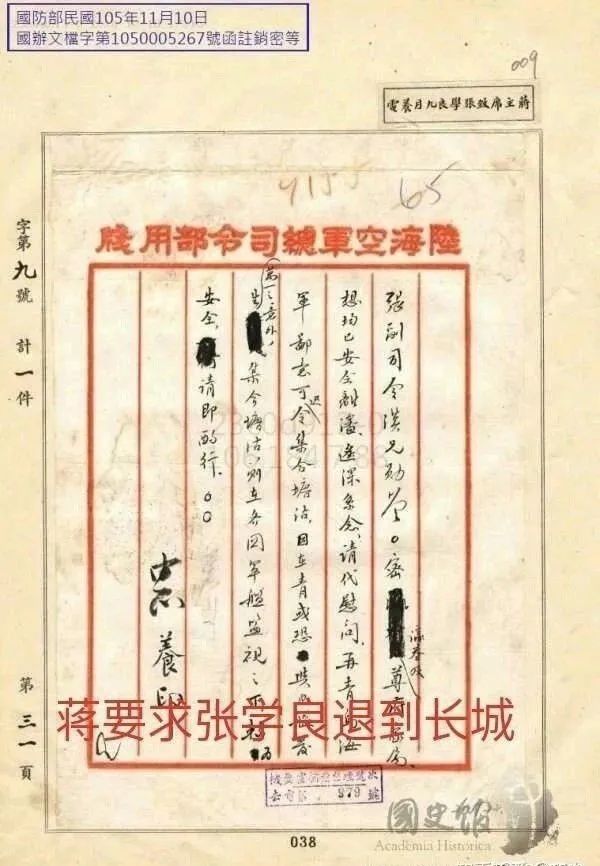 國防部民國105年11月10日
國辦文檔字第1050005267號函註銷密等
009
蔣主席致張學良九月養電
65
陸海空軍總司令部用牋
張副司令漢兄勛鑒。密 尊府家屬
想均已安全離瀋，遙深系念，請代慰問。再青島海
軍鄙意可迅令集合塘沽，因在青或恐
萬一之意外，
集合塘沽，則在各國軍艦監視之下
安全，請即酌行。
中正養印
字第九號 計一件
第三一頁
蒋要求张学良退到长城
979號
038
國史館
Academia Historica